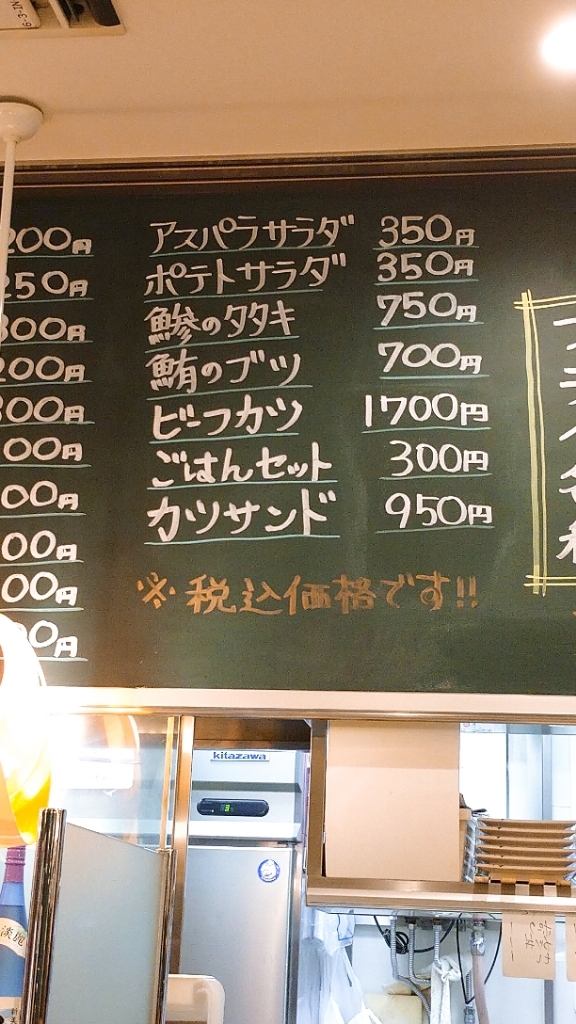 アスパラサラダ 350円
ポテトサラダ 350円
鯵のタタキ 750円
鮪のブツ 700円
ビーフカツ 1700円
ごはんセット 300円
カツサンド 950円
※税込価格です!!
200円
250円
300円
200円
300円
00円
00円
00円
00円
00円
kitazawa